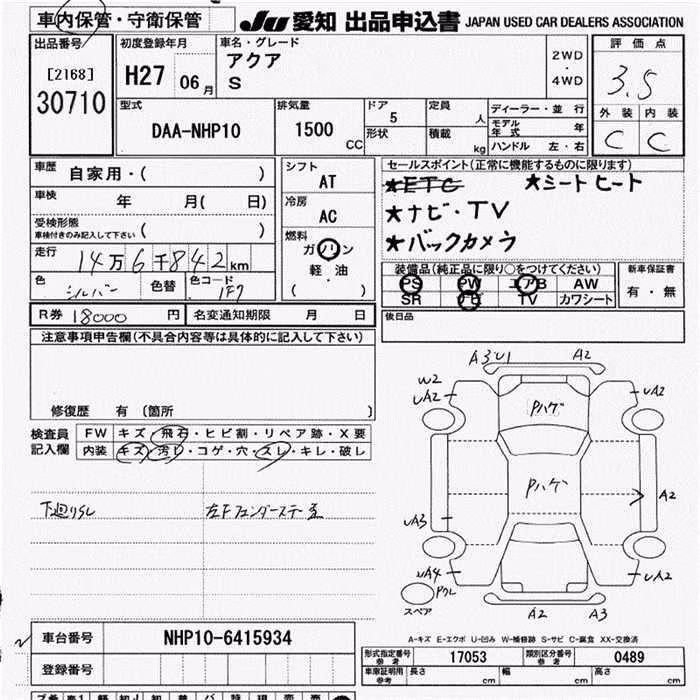 車内保管・守衛保管
JU 愛知 出品申込書 JAPAN USED CAR DEALERS ASSOCIATION
出品番号 初度登録年月 車名・グレード 評価点
[2168] H27 06月 アクア 2WD・4WD 3.5
30710 S
外装 内装
C C
型式 排気量 ドア 定員 ディーラー・並行
DAA-NHP10 1500 CC 5 人 モデル年式 年
形状 積載 kg ハンドル 左・右
車歴 自家用・( ) シフト AT セールスポイント(正常に機能するものに限ります)
★ETC ★シートヒート
車検 年 月( 日) 冷房 AC ★ナビ・TV
受検形態 車検付きのみ記入して下さい ( ) 燃料 ★バックカメラ
走行 14万6千842km ガソリン 軽・油 ・ ( )
装備品(純正品に限り○をつけてください) 新車保証書
色 シルバー 色替 色コード 1F7 PS PW エアB AW 有・無
SR ナビ TV カワシート
R券 18000 円 名変通知期限 月 日 後日品
注意事項申告欄(不具合内容等は具体的に記入して下さい)
修復歴 有 (箇所 )
A3U1 A2
W2
UA2 UA2
Pハゲ
検査員記入欄 FW キズ・飛石・ヒビ割・リペア跡・X要
内装 キズ・汚レ・コゲ・穴・スレ・キレ・破レ
Pハゲ A2
下廻りSL 左Fフェンダーステー歪
UA3
UA4 UA2
Pクレ
スペア A2 A3
A-キズ E-エクボ U-凹み W-補修跡 S-サビ C-腐食 XX-交換済
車台番号 NHP10-6415934
登録番号
形式指定番号 参考 17053 類別区分番号 参考 0489
車庫証明用 参考 長さ cm 幅 cm 高さ cm